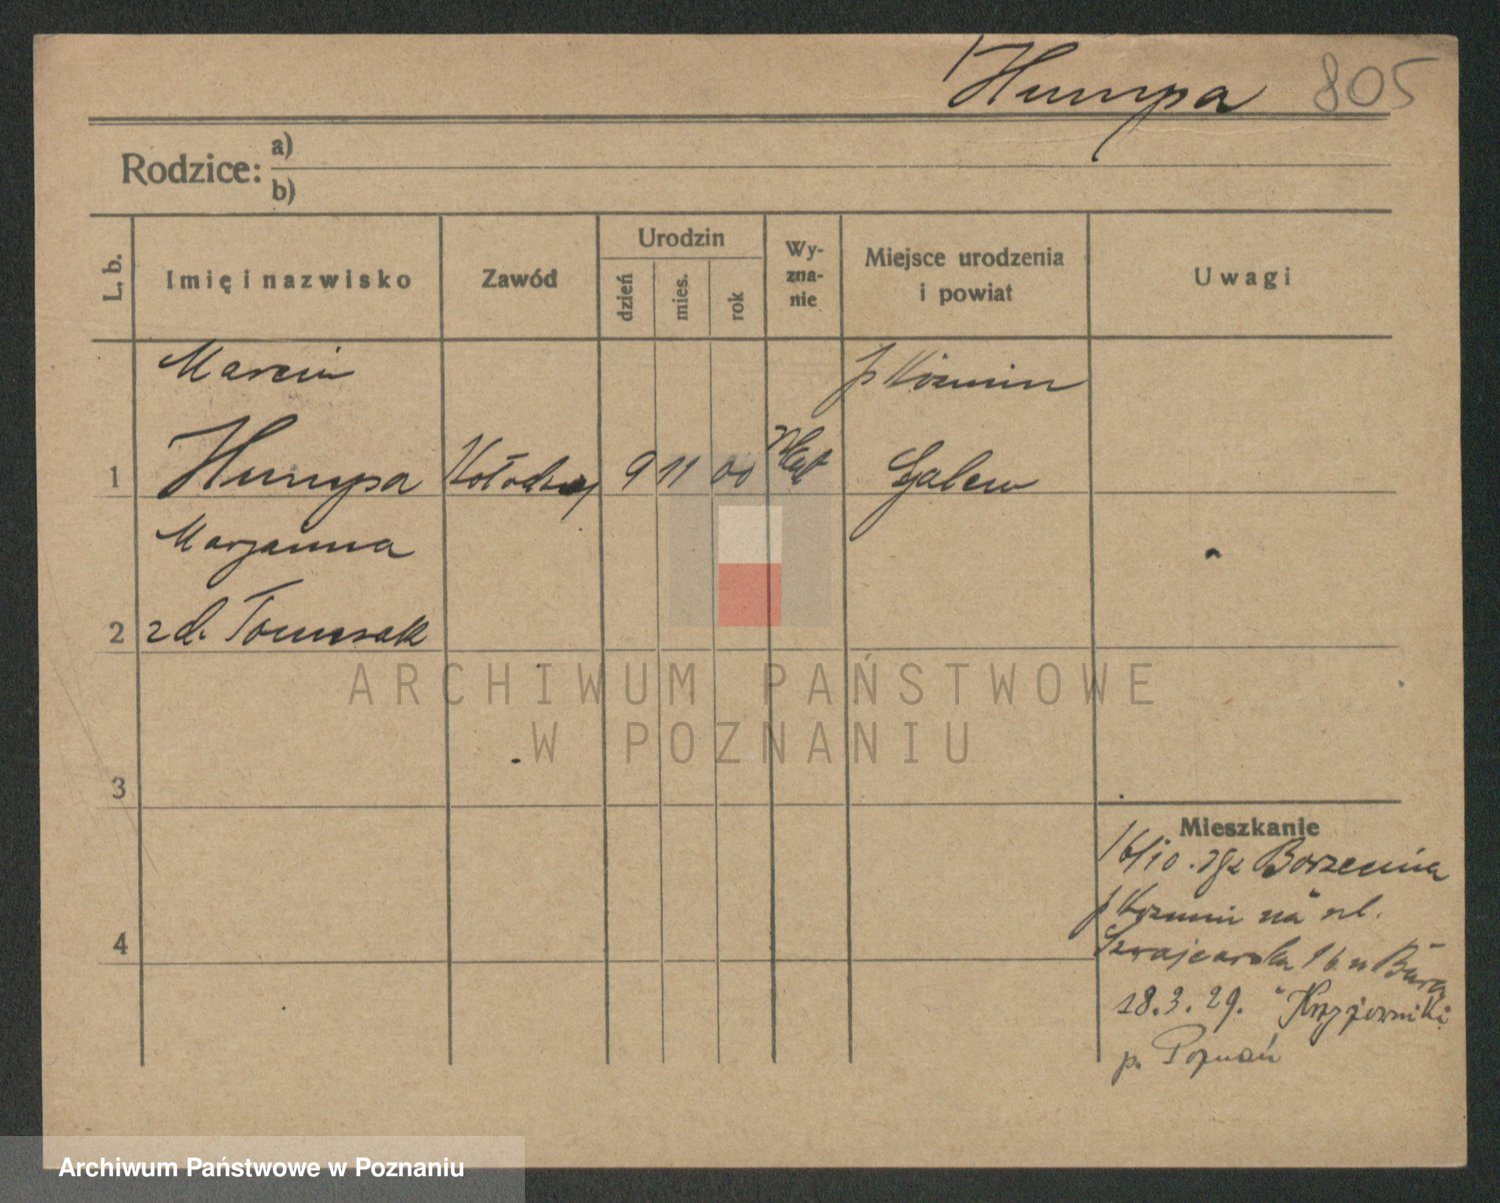 Humpa 805
Rodzice: a)
b)
L. b. Imię i nazwisko Zawód Urodzin dzień mies. rok Wy-zna-nie Miejsce urodzenia i powiat Uwagi
Marcin p Koźmin
1 Humpa Kołodziej 9 11 00 Kat Galew
Marjanna
2 zd. Tomczak
3
4
Mieszkanie
16/10. Borzencina
p Koźmin na ul.
Szwajcarska 16 u Bara
18.3.29. " Krzyżowniki
p. Poznań
ARCHIWUM PAŃSTWOWE
W POZNANIU
Archiwum Państwowe w Poznaniu